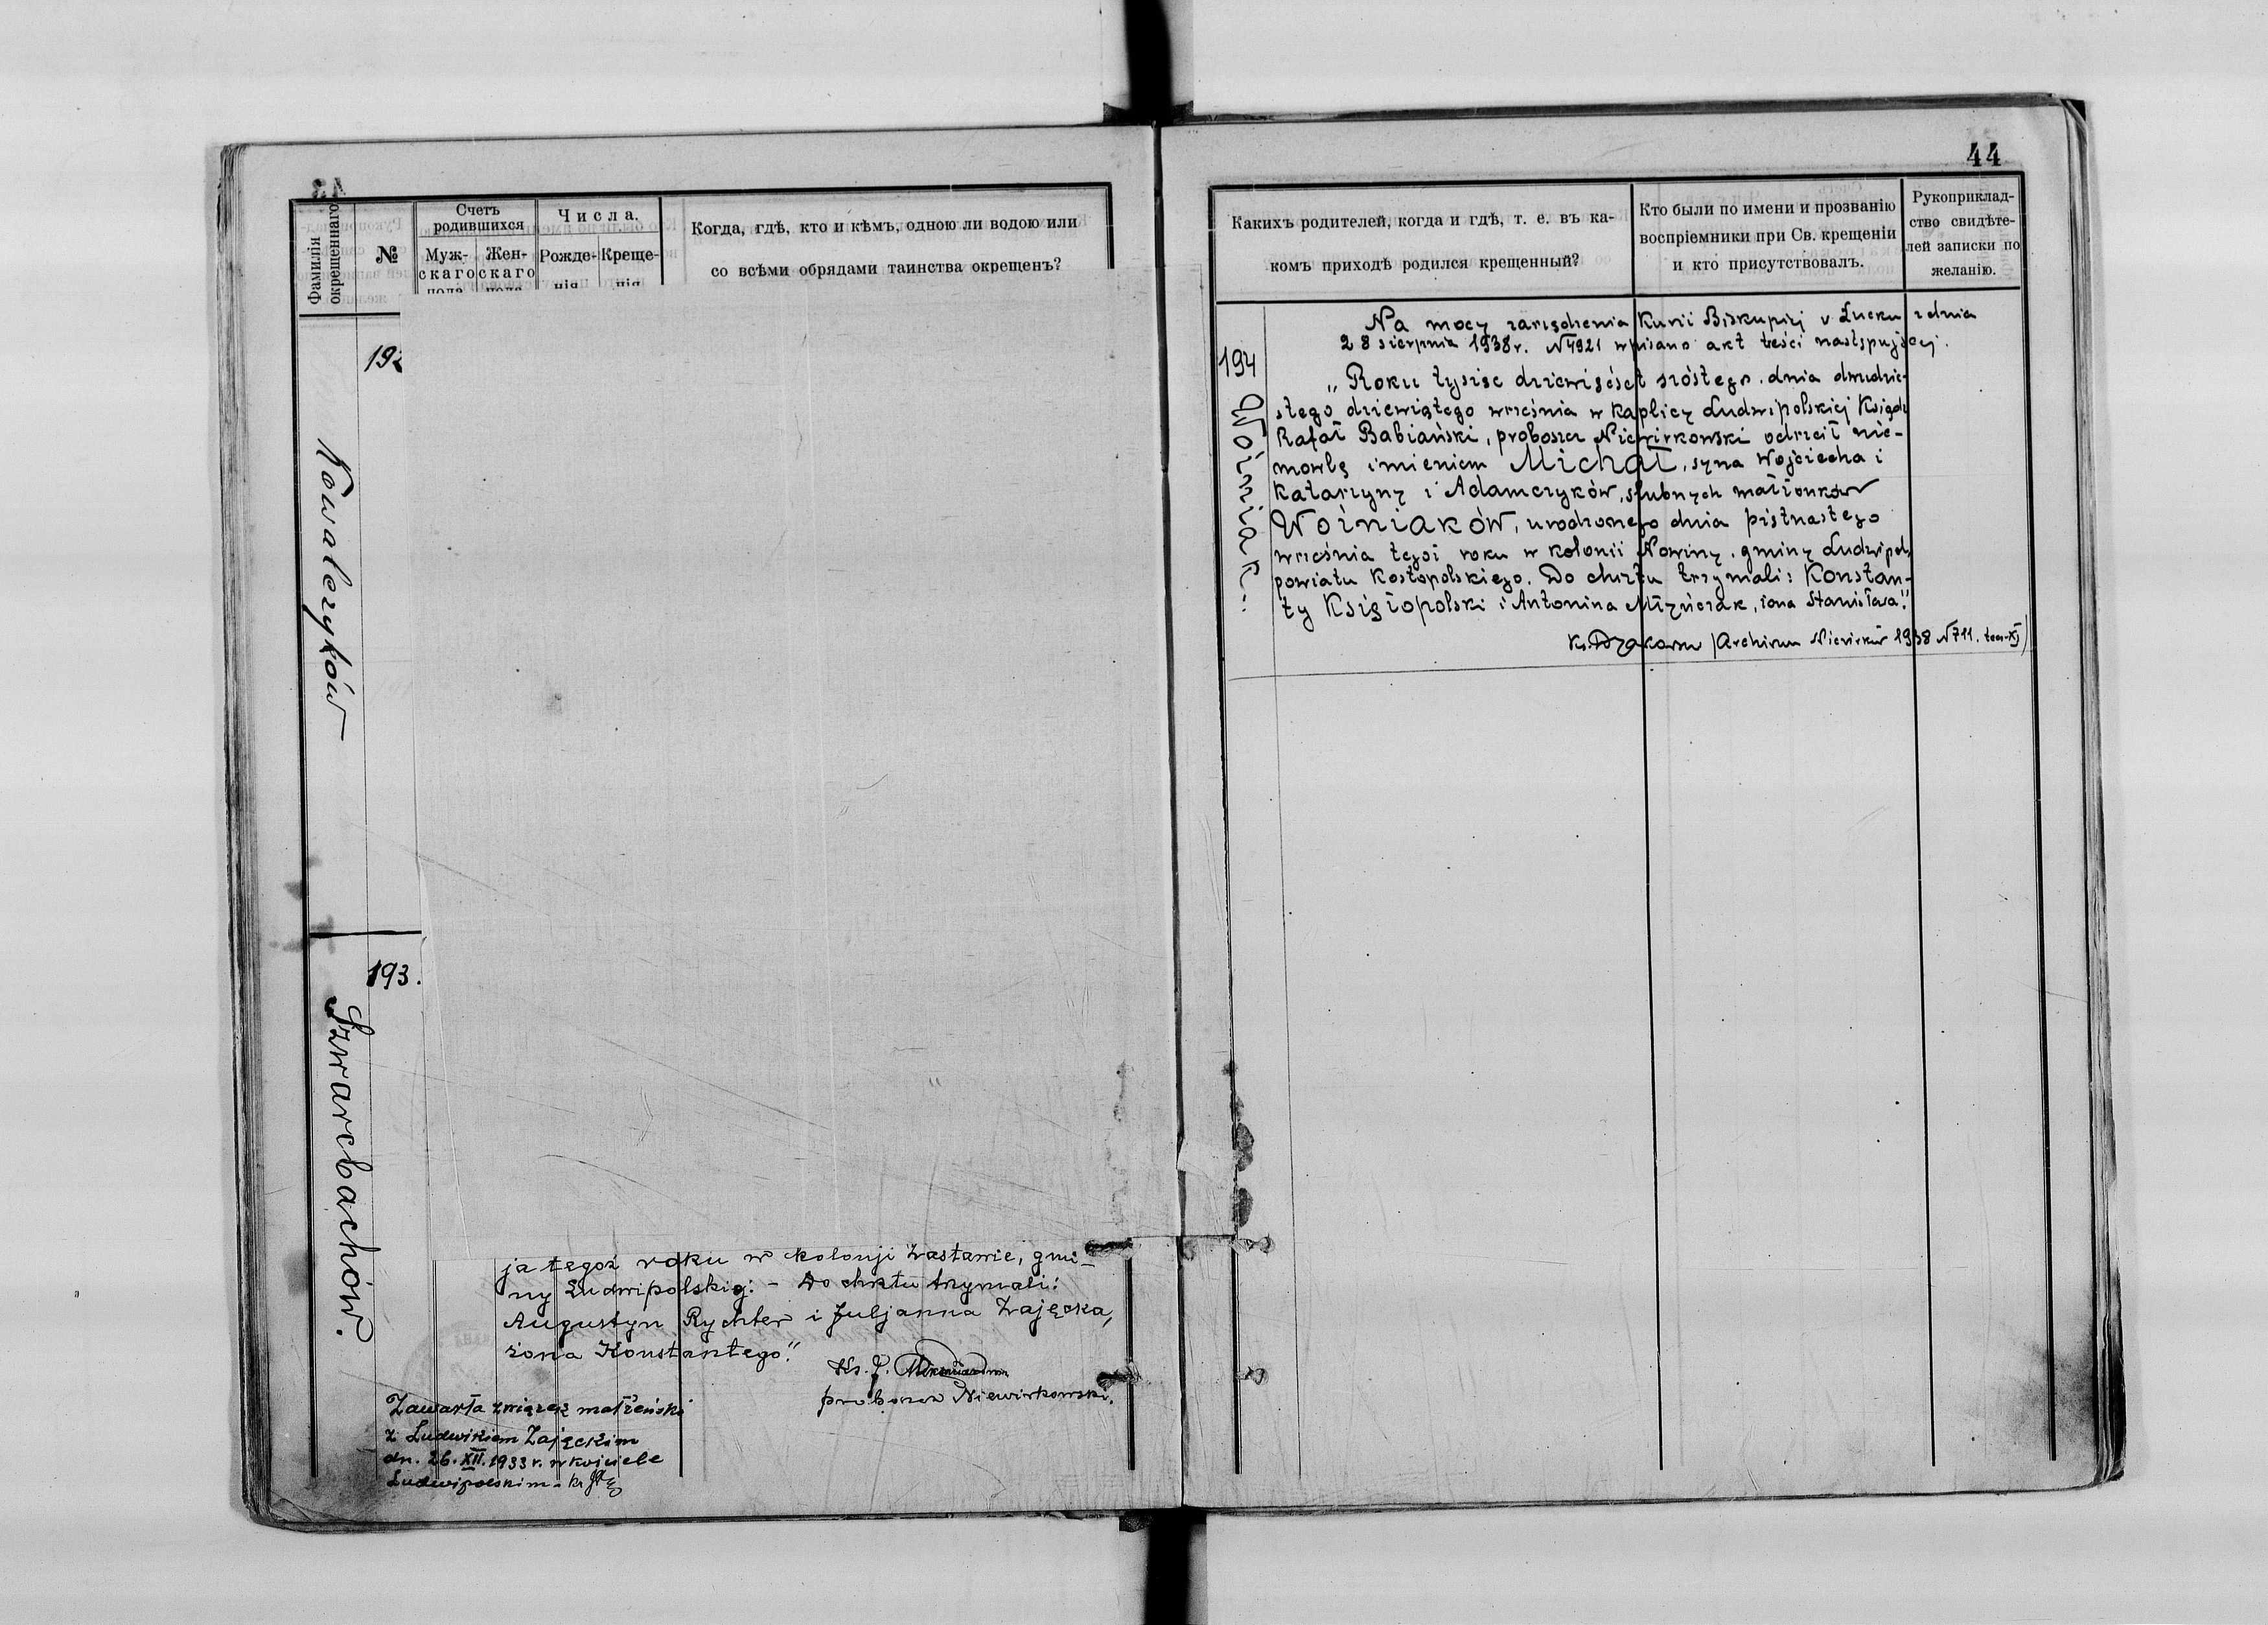 43
Фамилія окрещеннаго
№
Счетъ родившихся
Муж-
скаго
пола
Жен-
скаго
пола
Числа.
Рожде-
нія
Креще-
нія
Когда, гдѣ, кто и кѣмъ, одною ли водою или
со всѣми обрядами таинства окрещенъ?
192
Kowalczyków
193.
Szwarcbachów.
ja tegoż roku w kolonji Zastawie, gmi-
ny Ludwipolskiej: - Do chrztu trzymali:
Augustyn Rychter i Juljanna Zajęcka,
żona Konstantego."
Ks. J.
proboszcz Niewirkowski.
Zawarła związek małżeński
z Ludwikiem Zajęckim
dn. 26.XII.1933 r. w kościele
Ludwipolskim - ks
44
Какихъ родителей, когда и гдѣ, т. е. въ ка-
комъ приходѣ родился крещенный?
Кто были по имени и прозванію
воспріемники при Св. крещеніи
и кто присутствовалъ.
Рукоприклад-
ство свидѣте-
лей записки по
желанію.
Na mocy zarządzenia Kurii Biskupiej w Łucku z dnia
28 sierpnia 1938 r. N 4921 wpisano akt treści następującej.
194
Woźniak.
„Roku tysiąc dziewięćset szóstego. dnia dwudzie-
stego dziewiątego września w kaplicy Ludwipolskiej Ksiądz
Rafał Babiański, proboszcz Niewirkowski ochrzcił nie-
mowlę imieniem Michał, syna Wojciecha i
Katarzyny z Adamczyków, ślubnych małżonków
Woźniaków, urodzonego dnia piętnastego
września tegoż roku w kolonii Nowiny. gminy Ludwipol
powiatu Kostopolskiego. Do chrztu trzymali: Konstan-
ty Księżopolski i Antonina Młyńczak, żona Stanisława."
Ks. (Archiwum Niewirków 1938 N 711. XI)